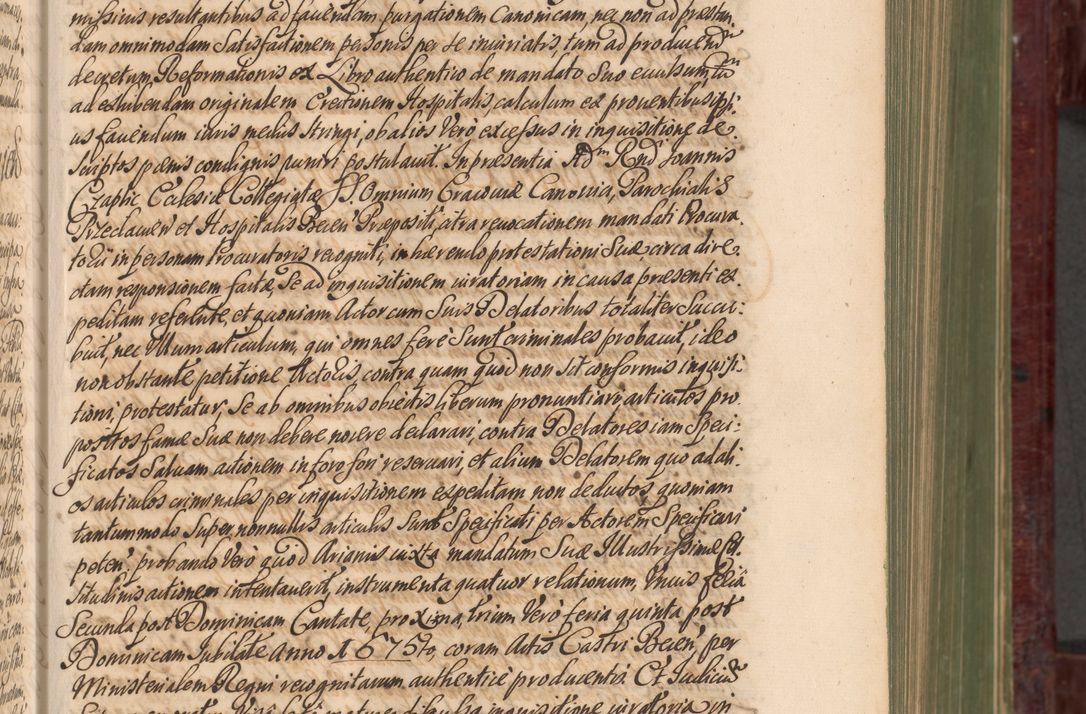 missivis resultantibus ad favendam purgationem Canonicam nec non ad præstan
dam omnimodam Satisfactionem personis per se iniuriatis, tum ad producend
decretum Reformationis ex Libro authentico de mandato Suo evulsum, tum
ad exhibendam originalem Erectionem Hospitalis, calculum ex proventibus ipsi:
us faciendum iuris medijs stringi, ob alios Vero excessus in inquisitione de
scriptos pœnis condignis puniri postulavit. In præsentia Adm Rnd Joannis
Czaplic Ecclesiæ Collegiatæ SS. Omnium Cracoviæ Canonici, Parochialis
Przeclavien et Hospitalis Becen Præpositi, citra revocationem mandati Procura
torij in personam Procuratoris recogniti, inhærendo protestationi Suæ circa dire
ctam responsionem factæ, Se ad inquisitionem iuratoriam in causa præsenti ex
peditam referente, et quoniam Actor cum Suis Delatoribus totaliter Succu:
buit, nec Ullum articulum, qui omnes fere Sunt criminales probavit, ideo
non obstante petitione Actoris, contra quam quod non sit conformis inquisi:
tioni, protestatur, Se ab omnibus obiectis liberum pronuntiari, articulos pro
positos famæ Suæ non debere nocere declarari, contra Delatores iam Speci:
ficatos Salvam actionem in foro fori reservari, et alium Delatorem quo ad ali:
os articulos criminales per inquisitionem expeditam non deductos, quoniam
tantummodo Super nonnullis articulis Sunt Specificati per Actorem Specificari
peten, probando Vero quod Arianis iuxta mandatum Suæ Illustrissimæ Cel
situdinis actionem intentaverit, instrumenta quatuor relationum, Unius feria
Secunda post Dominicam Cantate, proxima, trium Vero feria quinta post
Dominicam Jubilate Anno 1675to, coram Actis Castri Becen, per
Ministerialem Regni recognitarum authentice producentis. Et Judicium
inquisitione iuratoria in